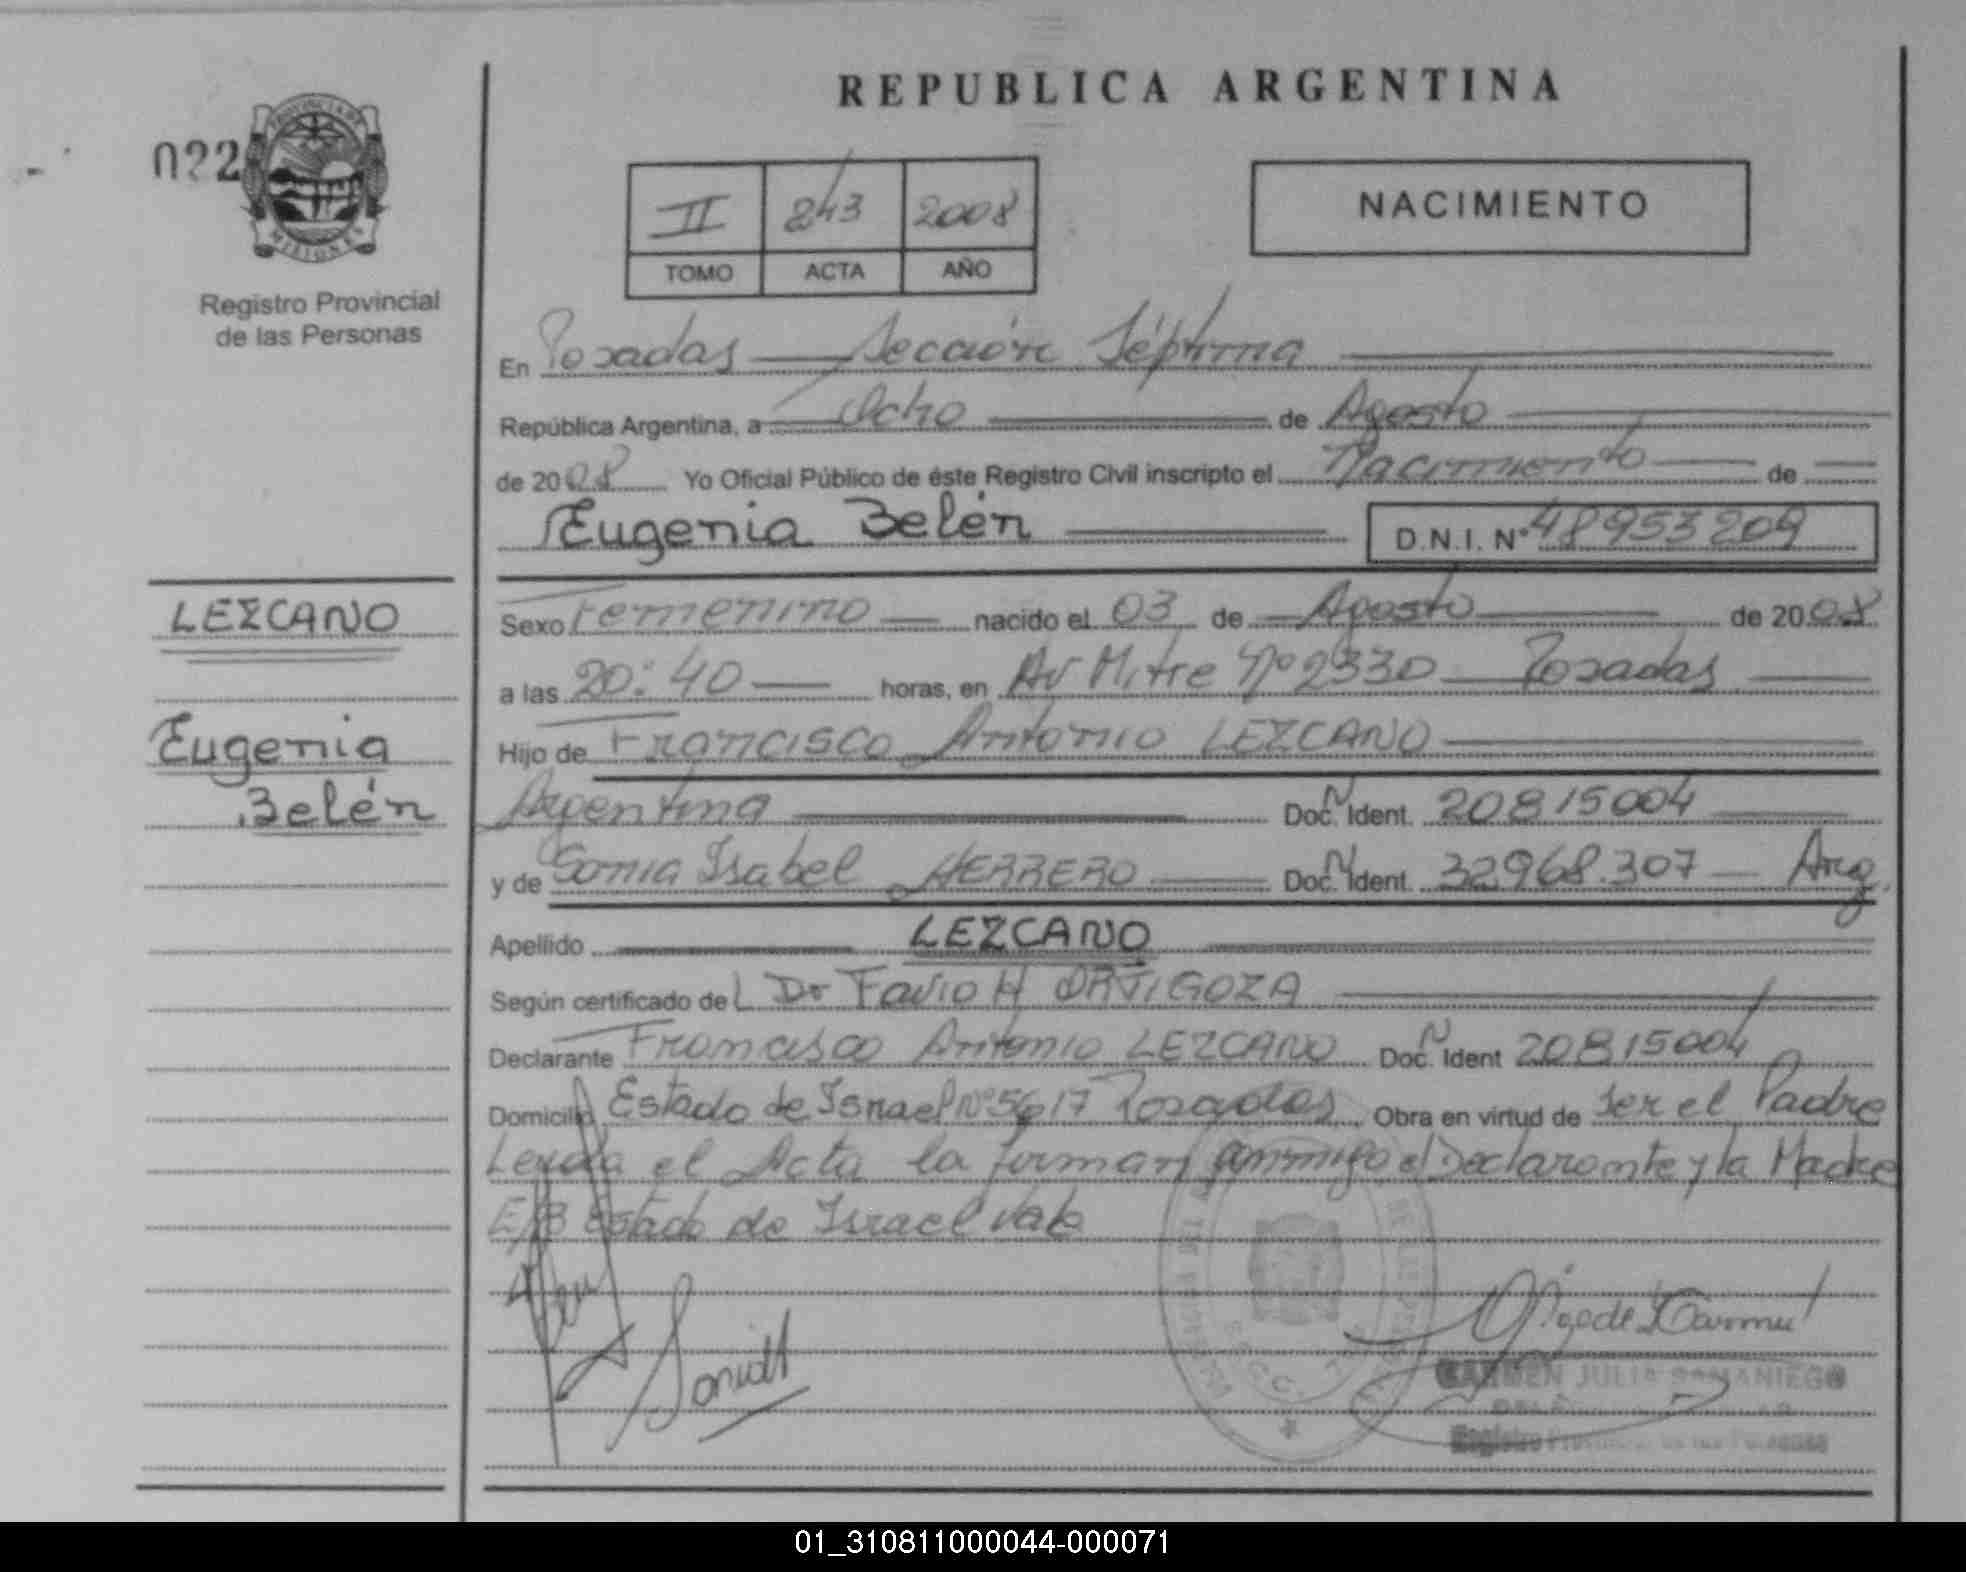 REPUBLICA ARGENTINA
022
PROVINCIA DE
MISIONES
Registro Provincial
de las Personas
II 243 2008
TOMO ACTA AÑO
NACIMIENTO
En Posadas Sección Séptima
República Argentina, a Ocho de Agosto
de 2008 Yo Oficial Público de éste Registro Civil inscripto el Nacimiento de
Eugenia Belén D.N.I. Nº 48953209
LEZCANO
Eugenia
Belén
Sexo Femenino nacido el 03 de Agosto de 2008
a las 20:40 horas, en Av Mitre Nº 2330 Posadas
Hijo de Francisco Antonio LEZCANO
Argentina Doc. Ident. 20815004
y de Sonia Isabel HERRERO Doc. Ident. 32968.307 Arg.
Apellido LEZCANO
Según certificado del Dr Favio H ORTIGOZA
Declarante Francisco Antonio LEZCANO Doc. Ident 20815004
Domicilio Estado de Israel Nº 5617 Posadas Obra en virtud de ser el Padre
Leyda el Acta la firman conmigo el Declarante y la Madre
E/B Estado de Israel Vale
CARMEN JULIA SAMANIEGO
Registro Provincial de las Personas
01_310811000044-000071